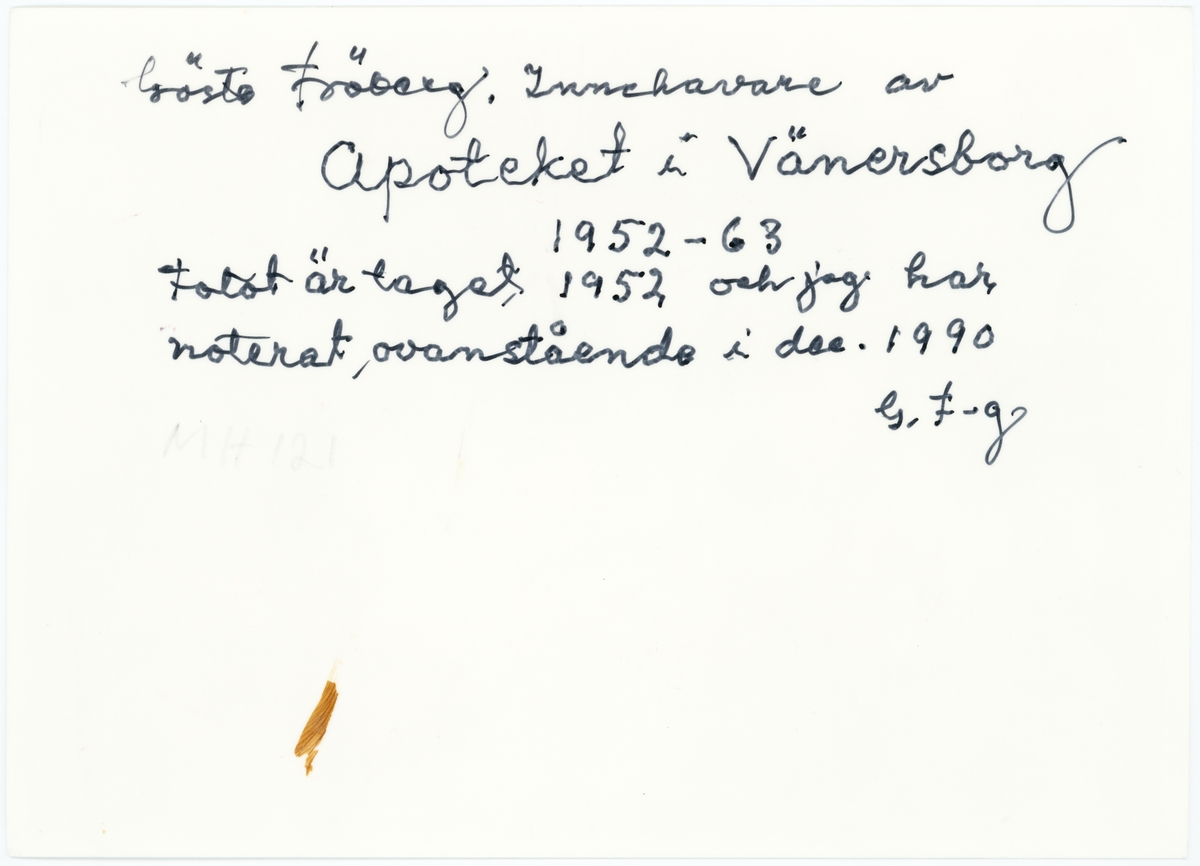 Gösta Fröberg. Innehavare av
Apoteket i Vänersborg
1952-63
Fotot är taget 1952 och jag har
noterat ovanstående i dec. 1990
G. F-g
MH 121